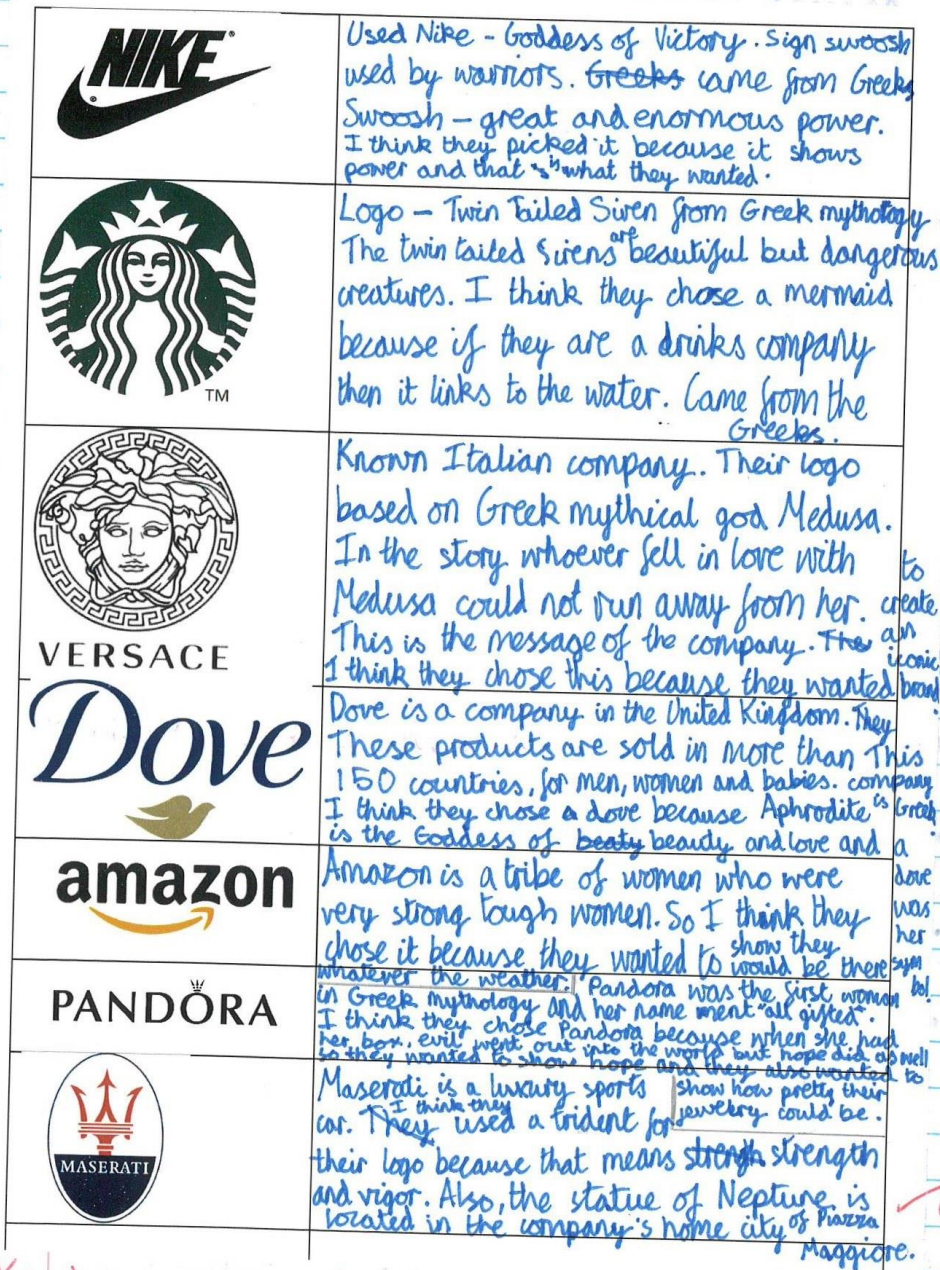 NIKE
Used Nike - Goddess of Victory. Sign swoosh
used by warriors. Greeks came from Greeks
Swoosh - great and enormous power.
I think they picked it because it shows
power and that is what they wanted.
TM
Logo - Twin Tailed Siren from Greek mythology
The twin tailed Sirens are beautiful but dangerous
creatures. I think they chose a mermaid
because if they are a drinks company
then it links to the water. Came from the
Greeks.
VERSACE
Known Italian company. Their logo
based on Greek mythical god Medusa.
In the story whoever fell in love with
Medusa could not run away from her.
This is the message of the company. The
I think they chose this because they wanted
to
create
an
iconic
brand.
Dove
Dove is a company in the United Kingdom. They
These products are sold in more than
150 countries, for men, women and babies.
This
company
is Greek
I think they chose a dove because Aphrodite
is the Goddess of beaty beauty and love and
a
dove
was
her
sym
bol.
amazon
Amazon is a tribe of women who were
very strong tough women. So I think they
chose it because they wanted to show they
would be there
whatever the weather.
PANDORA
Pandora was the first woman
in Greek mythology and her name ment "all gifted".
I think they chose Pandora because when she had
her box, evil went out into the world but hope did as well
so they wanted to show hope and they also wanted to
show how pretty their
jewelry could be.
MASERATI
Maserati is a luxury sports
car. They I think they used a trident for
their logo because that means strengh strength
and vigor. Also, the statue of Neptune is
located in the company's home city of Piazza
Maggiore.